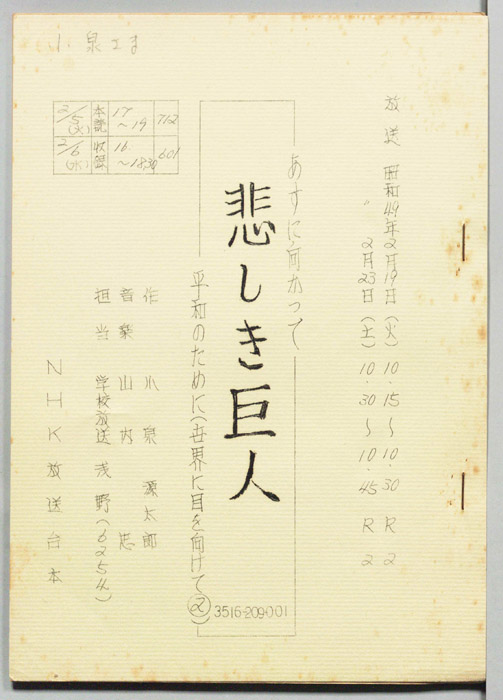 放送 昭和49年2月19日(火)10.15〜10.30 R2
〃 2月23日(土)10.30〜10.45 R2
あすに向かって
悲しき巨人
平和のために(世界に目を向けて②)
3516-209-001
作 小泉源太郎
音楽 山内 忠
担当 学校放送 浅野(6254)
NHK放送台本
小泉さま
2/5(火) 本読 17〜19 712
2/6(水) 収録 16〜18.30 601